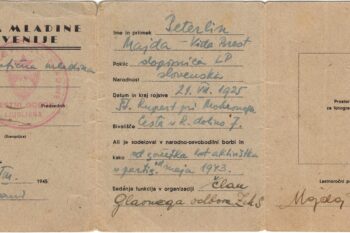 MLADINE
VENIJE
mladina
LJUBLJANA
Predsednik
1945
Ime in priimek Peterlin
Majda - Vida Brest
Poklic dopisnica LP
Narodnost slovenska
Datum in kraj rojstva
29. VII. 1925
Št. Rupert pri Mokronogu
Bivališče
Cesta v R. dolino 7.
Ali je sodeloval v narodno-osvobodilni borbi in
kako od početka kot aktivistka
v partiz. od maja 1943.
Sedanja funkcija v organizaciji član
Glavnega odbora ZMS
Prostor
za fotogr
Lastnoročni p
Majda